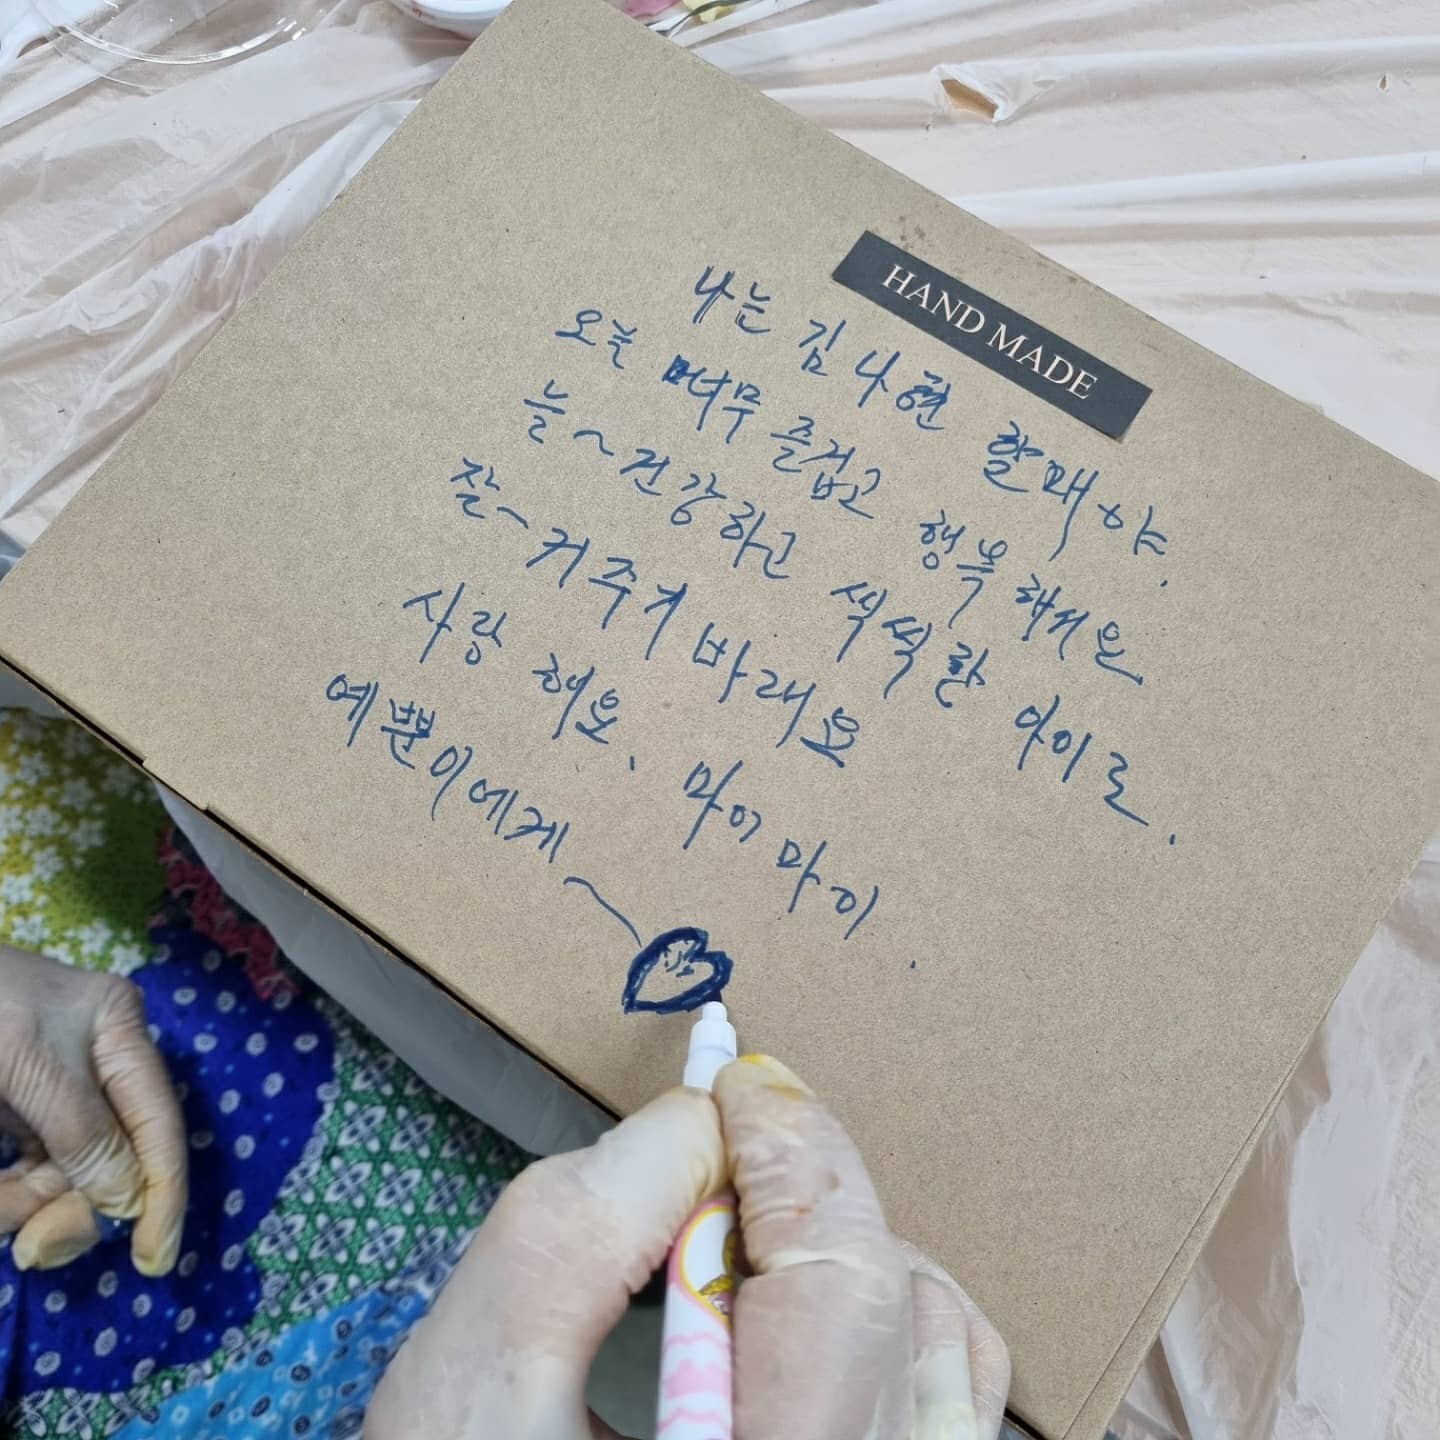 HAND MADE
나는 김나현 할매야.
오늘 너무 즐겁고 행복해서요
늘~건강하고 씩씩한 아이로.
잘~커주기 바래요
사랑해요. 마이마이.
예쁜이에게~